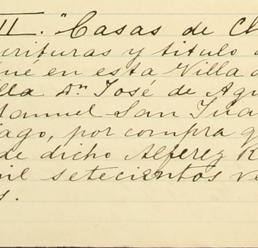 II. "Casas de Ch
crituras y titulo
ne en esta Villa d
lla Dn José de Agu
Manuel San Jua
ago, por compra q
de dicho Alferez R
mil setecientos ve
s.